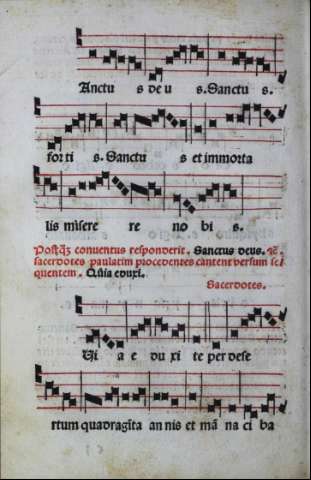 Anctu s de u s. Sanctu s.
forti s. Sanctu s et immorta
lis misere re no bi s.
Postqz conuentus responderit. Sanctus deus. ꝛc̄.
sacerdotes paulatim procedentes cantent versum se/
quentem. Quia eduxi.
Sacerdotes.
Uia e du xi te per dese
rtum quadragīta an nis et mā na ci ba